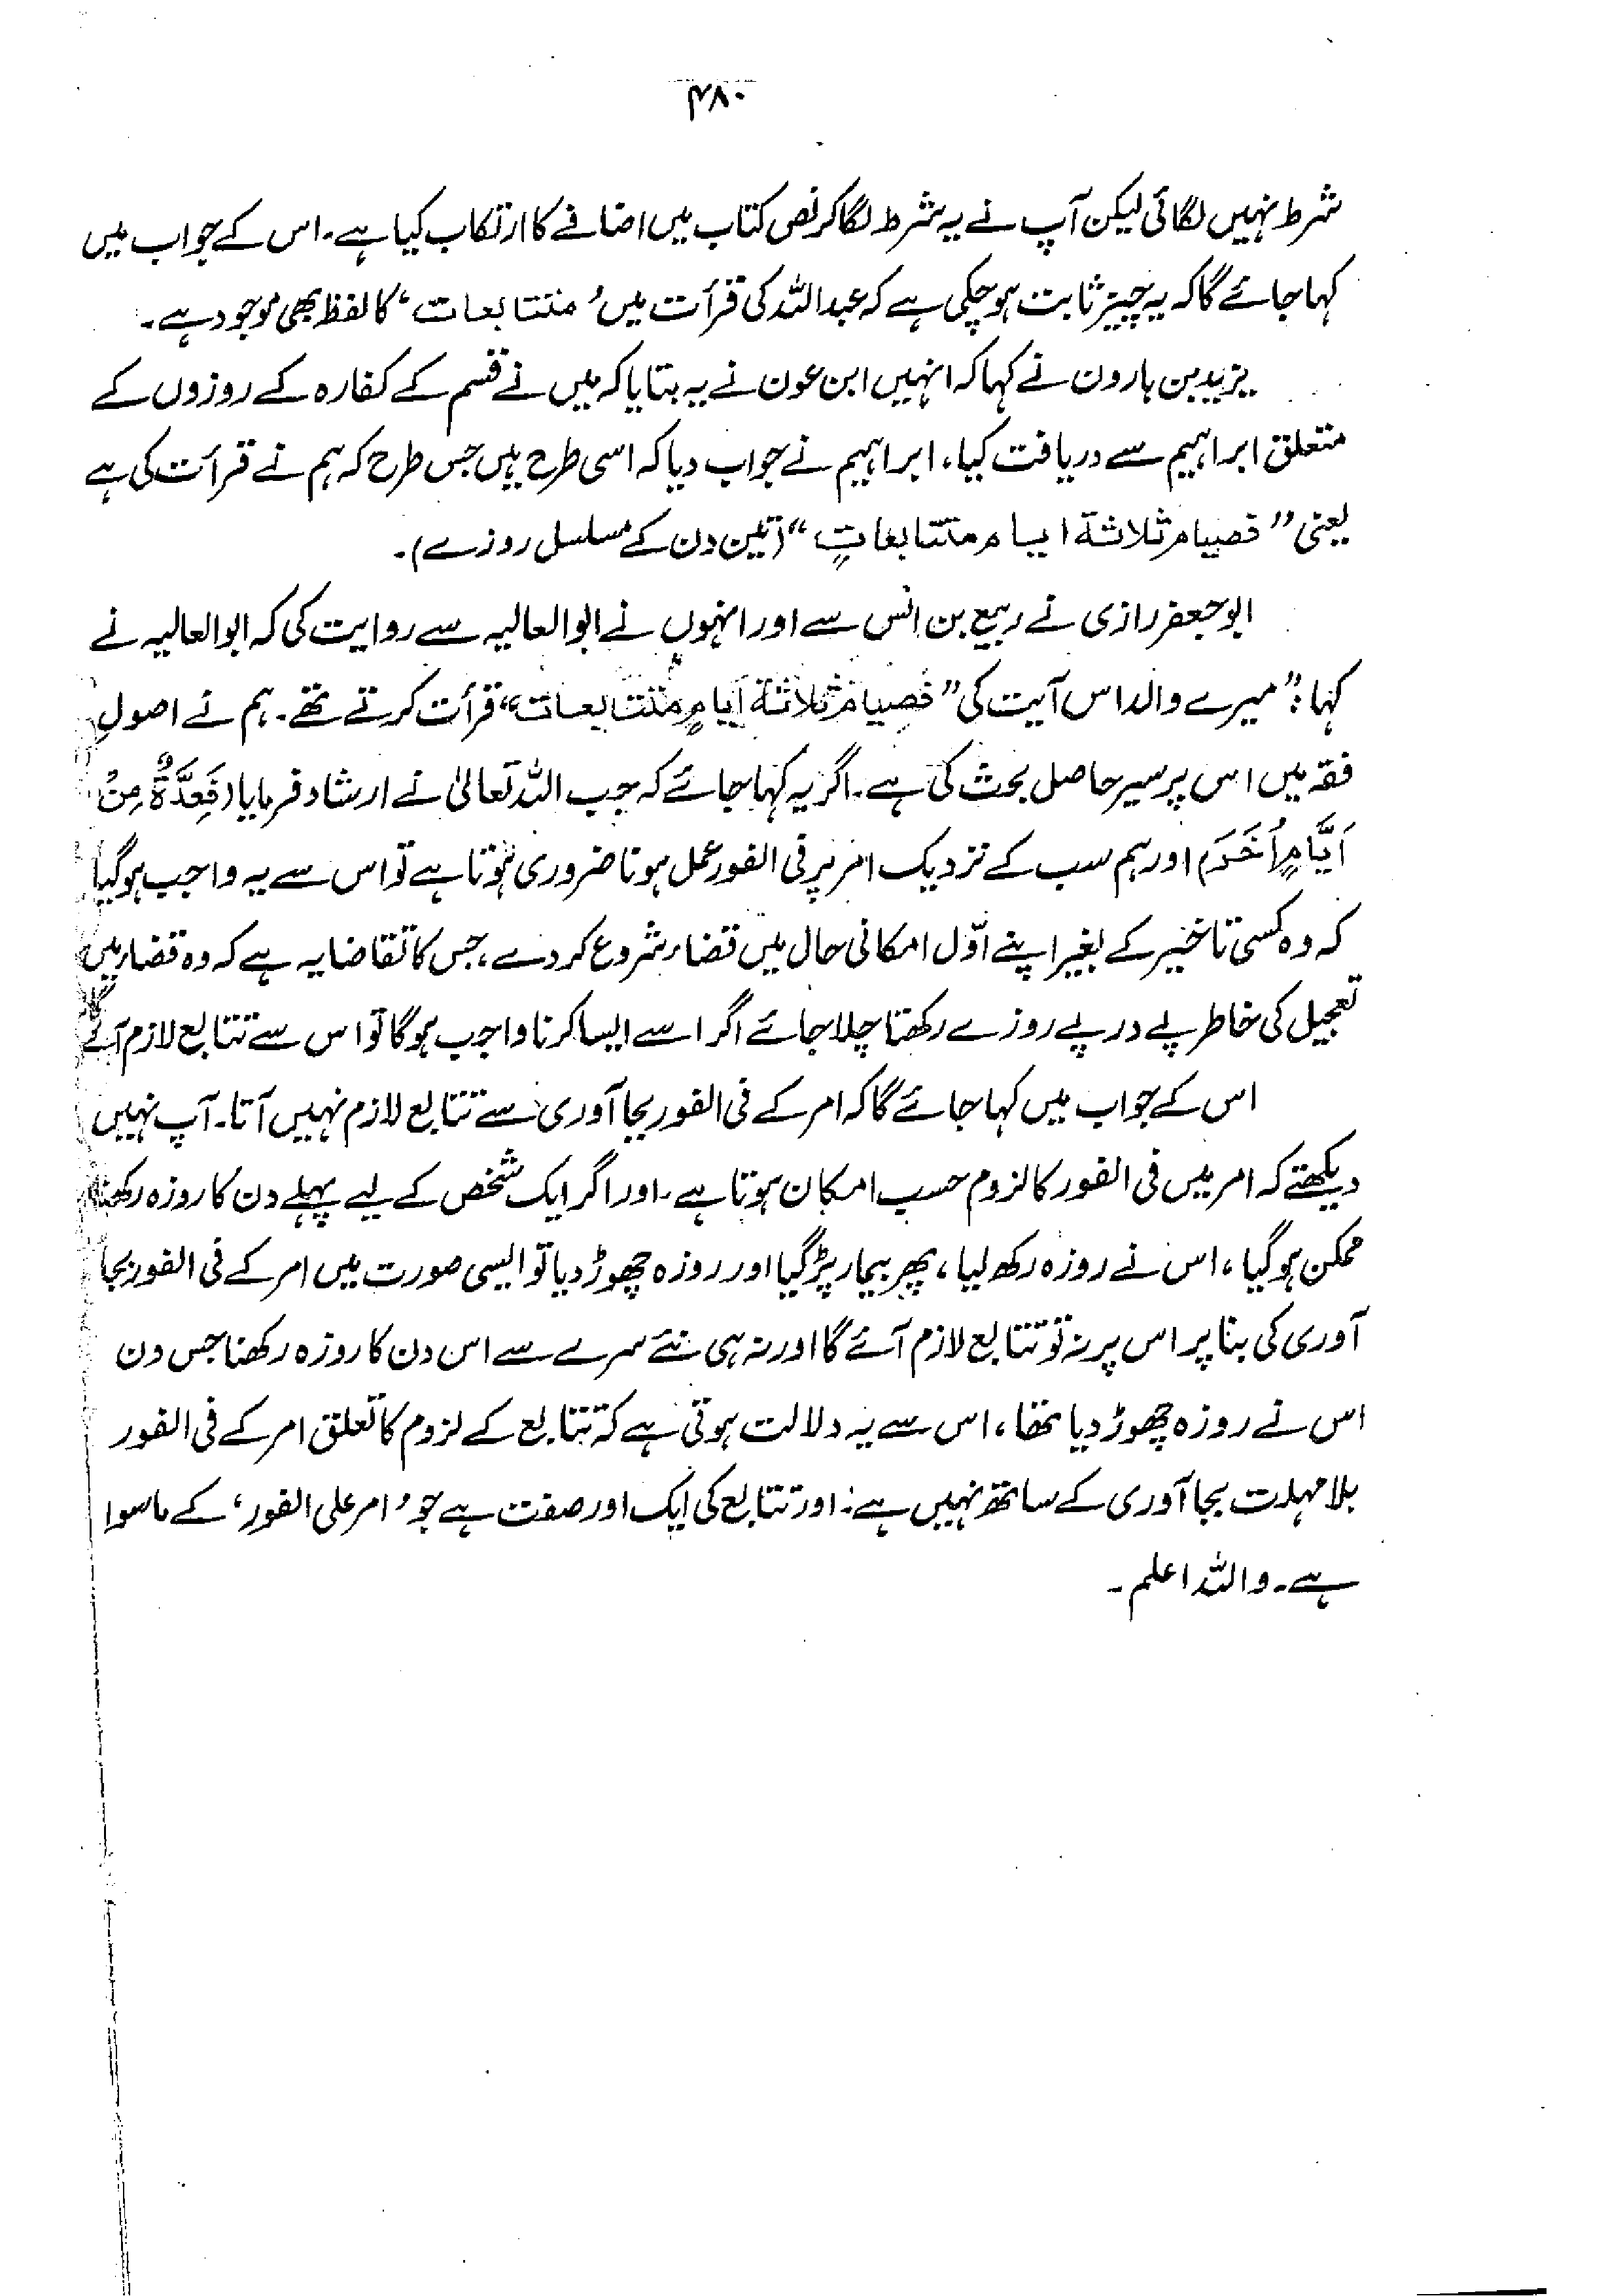 ۴۸۰
شرط نہیں لگائی لیکن آپ نے یہ شرط لگا کر نص کتاب میں اضافے کا ارتکاب کیا ہے۔ اس کے جواب میں
کہا جائے گا کہ یہ چیز ثابت ہو چکی ہے کہ عبداللہ کی قرأت میں ’متتابعات‘ کا لفظ بھی موجود ہے۔
یزید بن ہارون نے کہا کہ انہیں ابن عون نے یہ بتایا کہ میں نے قسم کے کفارہ کے روزوں کے
متعلق ابراہیم سے دریافت کیا، ابراہیم نے جواب دیا کہ اسی طرح ہیں جس طرح کہ ہم نے قرأت کی ہے
یعنی ”فصیام ثلاثة ایام متتابعاتٍ“ (تین دن کے مسلسل روزے)۔
ابو جعفر رازی نے ربیع بن انس سے اور انہوں نے ابوالعالیہ سے روایت کی کہ ابوالعالیہ نے
کہا: ”میرے والد اس آیت کی ”فَصِیَامُ ثَلَاثَةِ اَیَّامٍ مُتَتَابِعَات“ قرأت کرتے تھے۔ ہم نے اصولِ
فقہ میں اس پر سیر حاصل بحث کی ہے۔ اگر یہ کہا جائے کہ جب اللہ تعالیٰ نے ارشاد فرمایا (فَعِدَّةٌ مِنْ
اَیَّامٍ اُخَرَ) اور ہم سب کے نزدیک امر پر فی الفور عمل ہونا ضروری ہوتا ہے تو اس سے یہ واجب ہو گیا
کہ وہ کسی تاخیر کے بغیر اپنے اوّل امکانی حال میں قضاء شروع کر دے، جس کا تقاضا یہ ہے کہ وہ قضاء میں
تعجیل کی خاطر پے در پے روزے رکھتا چلا جائے اگر اسے ایسا کرنا واجب ہو گا تو اس سے تتابع لازم آئے گا
اس کے جواب میں کہا جائے گا کہ امر کے فی الفور بجا آوری سے تتابع لازم نہیں آتا۔ آپ نہیں
دیکھتے کہ امر میں فی الفور کا لزوم حسب امکان ہوتا ہے۔ اور اگر ایک شخص کے لیے پہلے دن کا روزہ رکھنا
ممکن ہو گیا، اس نے روزہ رکھ لیا، پھر بیمار پڑ گیا اور روزہ چھوڑ دیا تو ایسی صورت میں امر کے فی الفور بجا
آوری کی بنا پر اس پر نہ تو تتابع لازم آئے گا اور نہ ہی نئے سرے سے اس دن کا روزہ رکھنا جس دن
اس نے روزہ چھوڑ دیا تھا، اس سے یہ دلالت ہوتی ہے کہ تتابع کے لزوم کا تعلق امر کے فی الفور
بلا مہلت بجا آوری کے ساتھ نہیں ہے: اور تتابع کی ایک اور صفت ہے جو ’امر علی الفور‘ کے ماسوا
ہے۔ واللہ اعلم۔